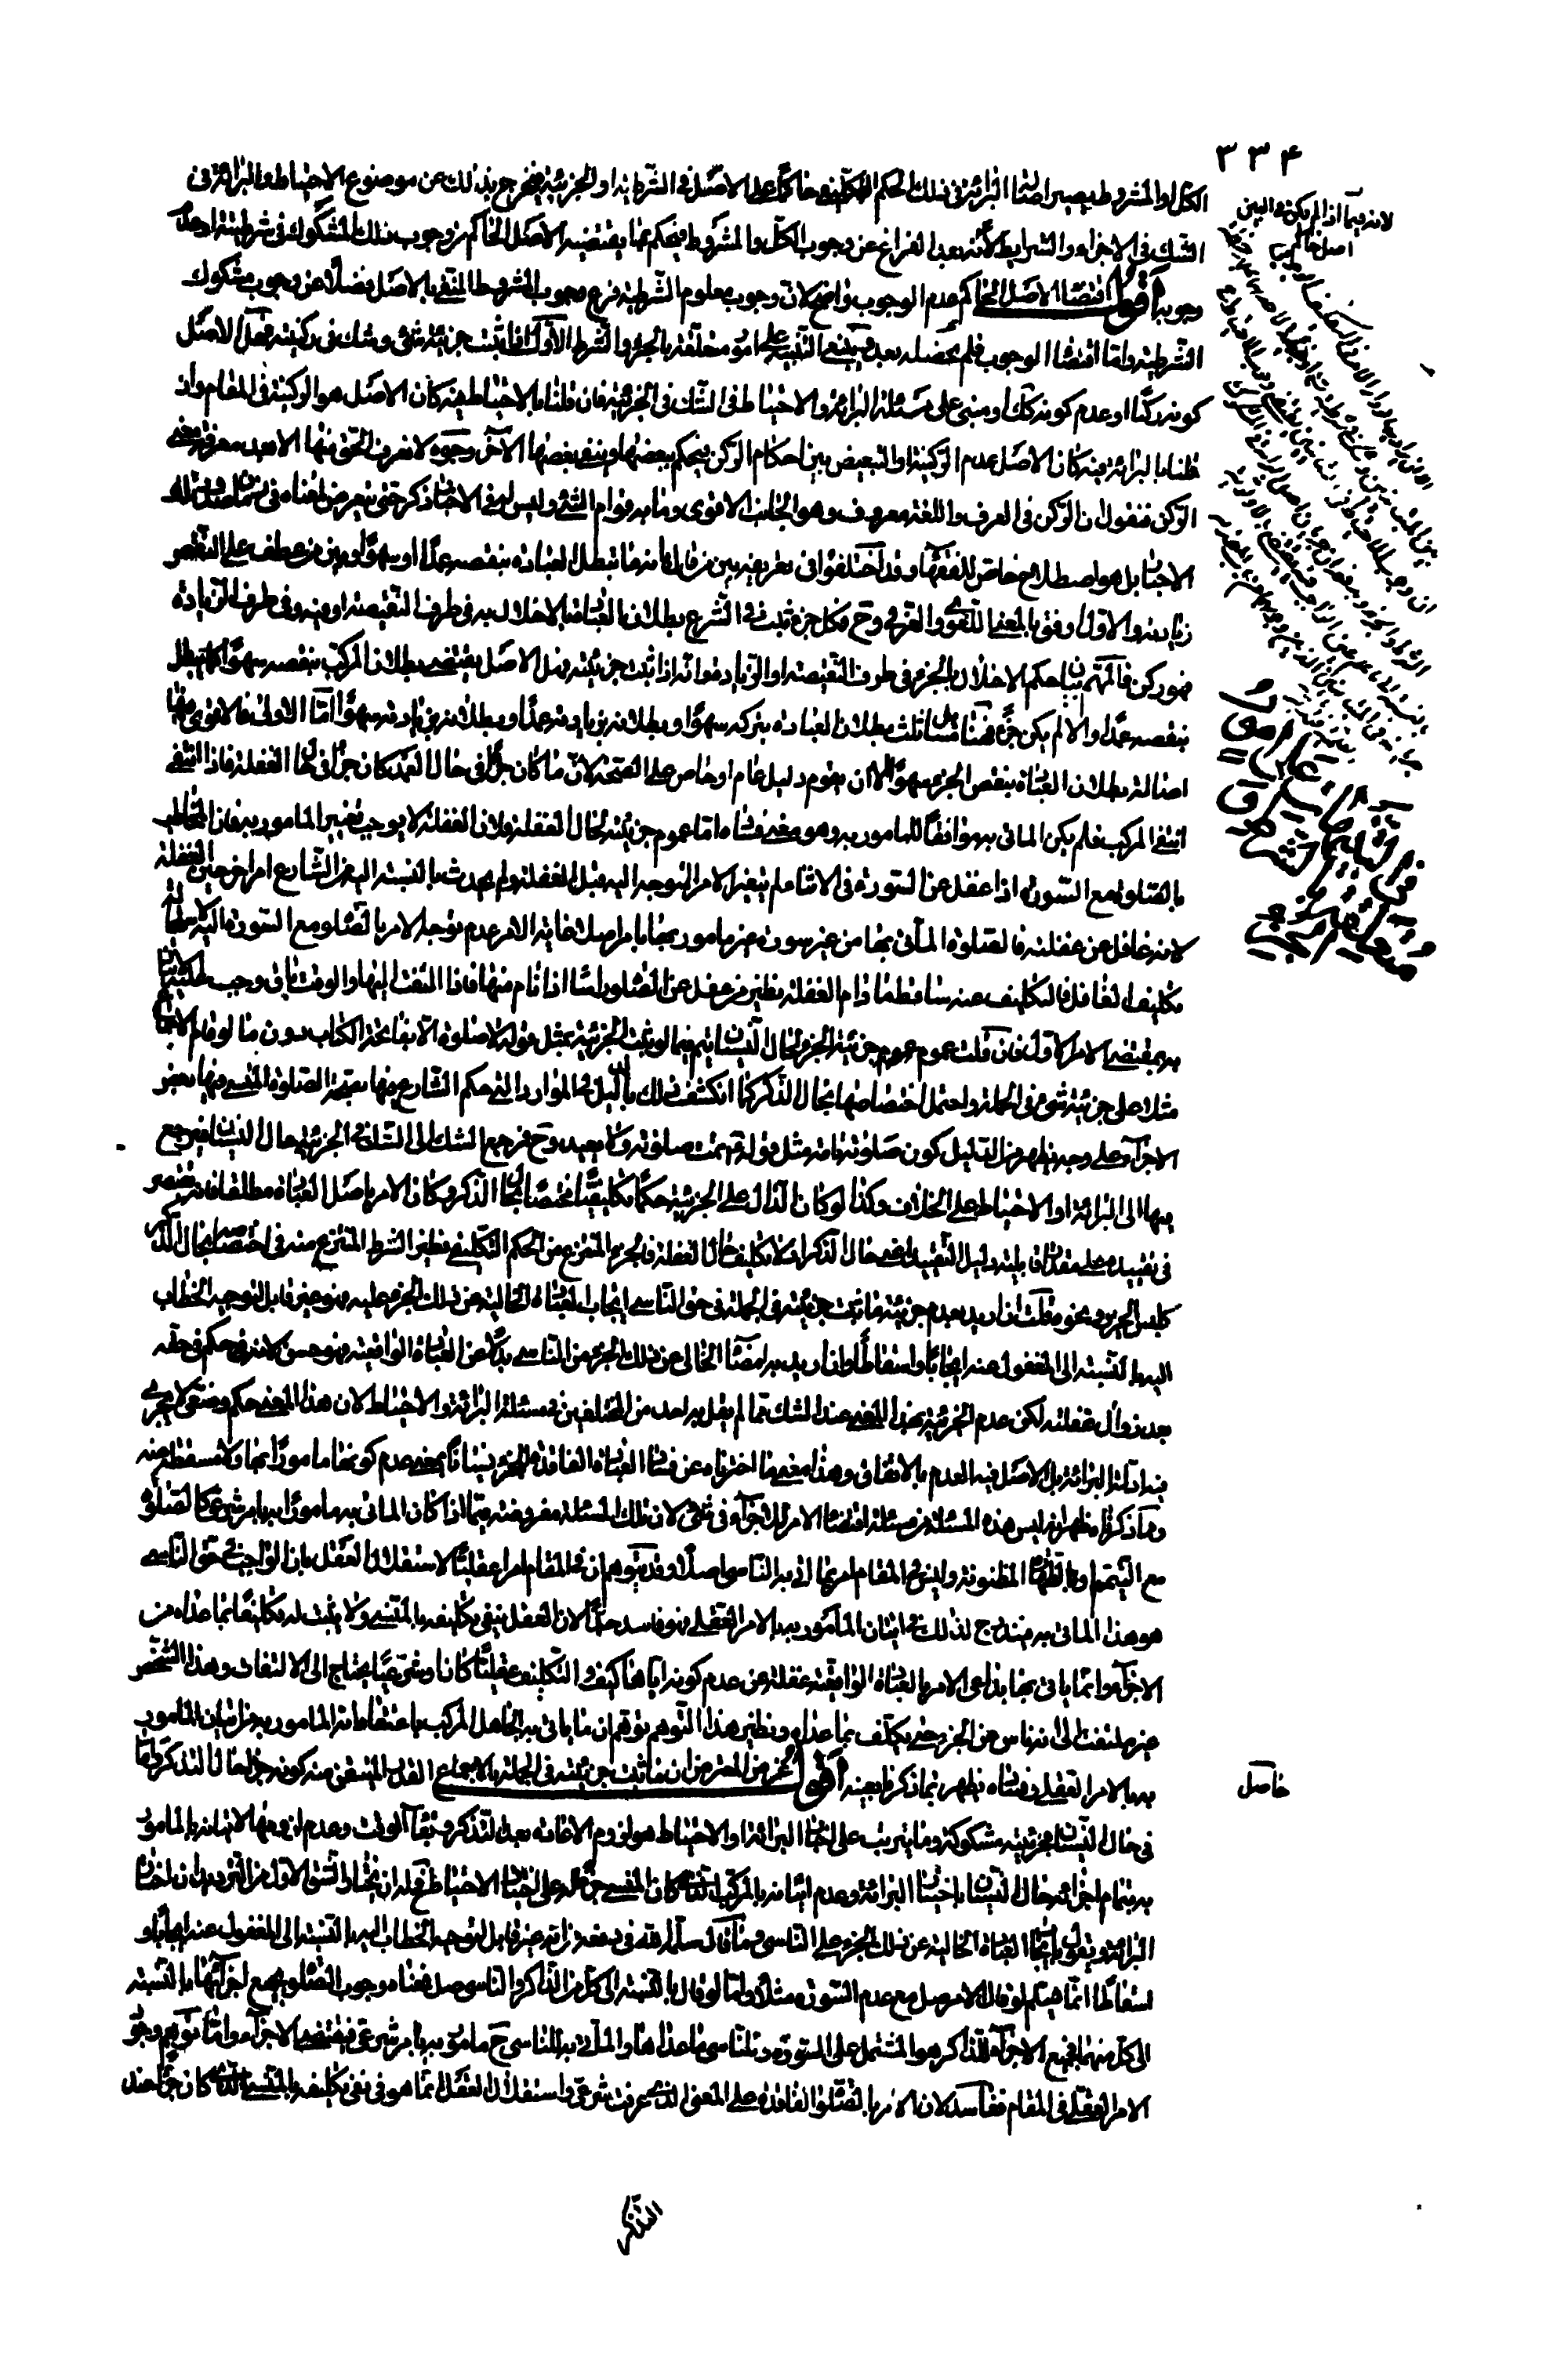 ٣٣۴
الكل او المشروط فيصير اصالة البرائة فى ذلك الحكم التكليفى حاكما على الاصل فى الشرطية او الجزئية فيخرج بذلك عن موضوع الاحتياط والبرائة فى
الشك فى الاجزاء والشرايط لانه بعد الفراغ عن وجوب الكل والمشروط فيحكم بما يقتضيه الاصل الحاكم من وجوب ذلك المشكوك فى شرطيته او عدم
وجوبه اقول اقتضاء الاصل الحاكم عدم الوجوب واضح لان وجوب معلوم الشرطية فرع وجوب المشروط المنفى بالاصل فضلا عن وجوب مشكوك
الشرطية واما اقتضاء الوجوب فلم نحصله بعد وينبغى التنبيه على امور متعلقة بالجزء والشرط الاول اذا ثبت جزئية شئ وشك فى ركنيته فهل الاصل
كونه ركنا او عدم كونه كك او مبنى على مسئلة البرائة والاحتياط فى الشك فى الجزئية فان قلنا بالاحتياط فيه كان الاصل هو الركنية فى المقام وان
قلنا بالبرائة فيه كان الاصل عدم الركنية او التبعيض بين احكام الركن فيحكم ببعضها وينفى بعضها الآخر وجوه لا نعرف الحق منها الا بعد معرفة معنى
الركن فنقول ان الركن فى العرف واللغة معروف وهو الجانب الاقوى وما به قوام الشئ وليس له فى الاخبار ذكر حتى نتعرض لمعناه فى زمان صدور تلك
الاخبار بل هو اصطلاح خاص للفقهاء وقد اختلفوا فى تعريفه بين من قال بانه ما تبطل العبادة بنقصه عمدا او سهوا وبين من عطف على النقص
زيادته والاول اوفق بالمعنى اللغوى والعرفى وح فكل جزء ثبت فى الشرع بطلان العبادة بالاخلال به فى طرف النقيصة او فيه وفى طرف الزيادة
فهو ركن فالمهم بيان حكم الاخلال بالجزء فى طرف النقيصة او الزيادة وانه اذا ثبت جزئيته فهل الاصل يقتضى بطلان المركب بنقصه سهوا كما تبطل
بنقصه عمدا والا لم يكن جزء فهنا مسائل ثلث بطلان العبادة بتركه سهوا وبطلانه بزيادته عمدا وبطلانه بزيادته سهوا اما الاولى فالاقوى فيها
اصالة بطلان العبادة بنقص الجزء سهوا الا ان يقوم دليل عام او خاص على الصحة لان ما كان جزء فى حال العمد كان جزء فى حال الغفلة فاذا انتفى
انتفى المركب فلم يكن الماتى به موافقا للمامور به وهو معنى فساده اما عموم جزئيته لحال الغفلة فلان الغفلة لا يوجب تغيير المامور به فان المخاطب
بالصلوة مع السورة اذا غفل عن السورة فى الاثناء لم يتغير الامر المتوجه اليه قبل الغفلة ولم يحدث بالنسبة اليه من الشارع امر اخر حين الغفلة
لانه غافل عن غفلته فالصلوة الماتى بها من غير سورة غير مامور بها بامر اصلا غاية الامر عدم توجه الامر بالصلوة مع السورة اليه لاستحالة
تكليف الغافل فالتكليف عنه ساقط ما دام الغفلة نظير من غفل عن الصلوة راسا او نام عنها فاذا التفت اليها والوقت باق وجب عليه الاتيان
به بمقتضى الامر الاول فان قلت عموم جزئية الجزء لحال النسيان يتم فيما لو ثبت الجزئية بمثل قوله لا صلوة الا بفاتحة الكتاب دون ما لو قام الاجماع
مثلا على جزئية شئ فى الجملة واحتمل اختصاصها بحال الذكر كما انكشف ذلك بالدليل فى الموارد التى حكم الشارع فيها بصحة الصلوة المنسى فيها بعض
الاجزاء على وجه يظهر من الدليل كون صلوته تامة مثل قوله ع تمت صلوته ولا يعيد وح فمرجع الشك الى الشك فى الجزئية حال النسيان فيرجع
فيها الى البرائة او الاحتياط على الخلاف وكذا لو كان الدال على الجزئية حكما تكليفيا مختصا بحال الذكر وكان الامر باصل العبادة مطلقا فانه يقتصر
فى تقييده على مقدار قابلية دليل التقييد اعنى حال الذكر اذ لا تكليف حال الغفلة فالجزء المنتزع من الحكم التكليفى نظير الشرط المنتزع منه فى اختصاصه بحال الذكر
كلبس الحرير ونحوه قلت ان اريد بعدم جزئية ما ثبت جزئيته فى الجملة فى حق الناسى ايجاب العبادة الخالية عن ذلك الجزء عليه فهو غير قابل لتوجيه الخطاب
اليه بالنسبة الى المغفول عنه ايجابا واسقاطا وان اريد به امضاء الخالى عن ذلك الجزء من الناسى بدلا عن العبادة الواقعية فهو حسن لانه حكم فى حقه
بعد زوال غفلته لكن عدم الجزئية بهذا المعنى عند الشك مما لم يقل به احد من المختلفين فى مسئلة البرائة والاحتياط لان هذا المعنى حكم وضعى لا يجرى
فيه ادلة البرائة بل الاصل فيه العدم بالاتفاق وهذا معنى ما اخترناه من فساد العبادة الفاقدة للجزء نسيانا بمعنى عدم كونها مامورا بها ولا مسقطا عنه
ومما ذكرنا يظهر انه ليس هذه المسئلة من مسئلة اقتضاء الامر للاجزاء فى شئ لان تلك المسئلة مفروضة فيما اذا كان الماتى به مامورا به بامر شرعى كالصلوة
مع التيمم او بالطهارة المظنونة وليس فى المقام امر بما اتى به الناسى اصلا وقد يتوهم ان فى المقام امرا عقليا لاستقلال العقل بان الواجب فى حق الناسى
هو هذا الماتى به فيندرج لذلك فى اتيان المامور به بالامر العقلى وهو فاسد جدا لان العقل ينفى تكليفه بالمنسى ولا يثبت له تكليفا بما عداه من
الاجزاء وانما ياتى بها بداعى الامر بالعبادة الواقعية غفلة عن عدم كونه اياها كيف والتكليف عقليا كان او شرعيا يحتاج الى الالتفات وهذا الشخص
غير ملتفت الى انه ناس عن الجزء حتى يكلف بما عداه ونظير هذا التوهم توهم ان ما ياتى به الجاهل المركب باعتقاد انه المامور به من اتيان المامور
به بالامر العقلى وفساده يظهر بما ذكرنا بعينه اقول غرض المعترض ان ما ثبت جزئيته فى الجملة بالاجماع القدر المتيقن منه كونه جزء لحال التذكر واما
فى حال النسيان فجزئيته مشكوكة وما يترتب على اختيار البرائة او الاحتياط هو لزوم الاعادة بعد التذكر وبقاء الوقت وعدم لزومها لاتيانه بالمامور
به بتمام اجزائه حال النسيان باختيار البرائة وعدم اتيانه بالمركب الذى كان المنسى جزء له على اختيار الاحتياط فح له ان يختار الشق الاول من الترديد ان اختار
البرائة ويقول بايجاب العبادة الخالية عن ذلك الجزء على الناسى وما قال سلمه الله فى دفعه من انه غير قابل لتوجيه الخطاب اليه بالنسبة الى المغفول عنه ايجابا و
اسقاطا انما هو مسلم لو قال الامر صل مع عدم السورة مثلا واما لو قال بالنسبة الى كل من الذاكر والناسى صل فمعناه وجوب الصلوة بجميع اجزائها بالنسبة
الى كل منهما فجميع الاجزاء للذاكر هو المشتمل على السورة وللناسى ما عداها والماتى به للناسى ح مامور به بامر شرعى فيقتضى الاجزاء واما توهم وجود
الامر العقلى فى المقام ففاسد لان الامر بالصلوة الفاقدة على المعنى الذى عرفت شرعى واستقلال العقل انما هو فى نفى تكليفه بالمنسى الذى كان جزء عند
لانه فيما اذا لم يكن فى البين
اصل حاكم
حاصل
التذكر